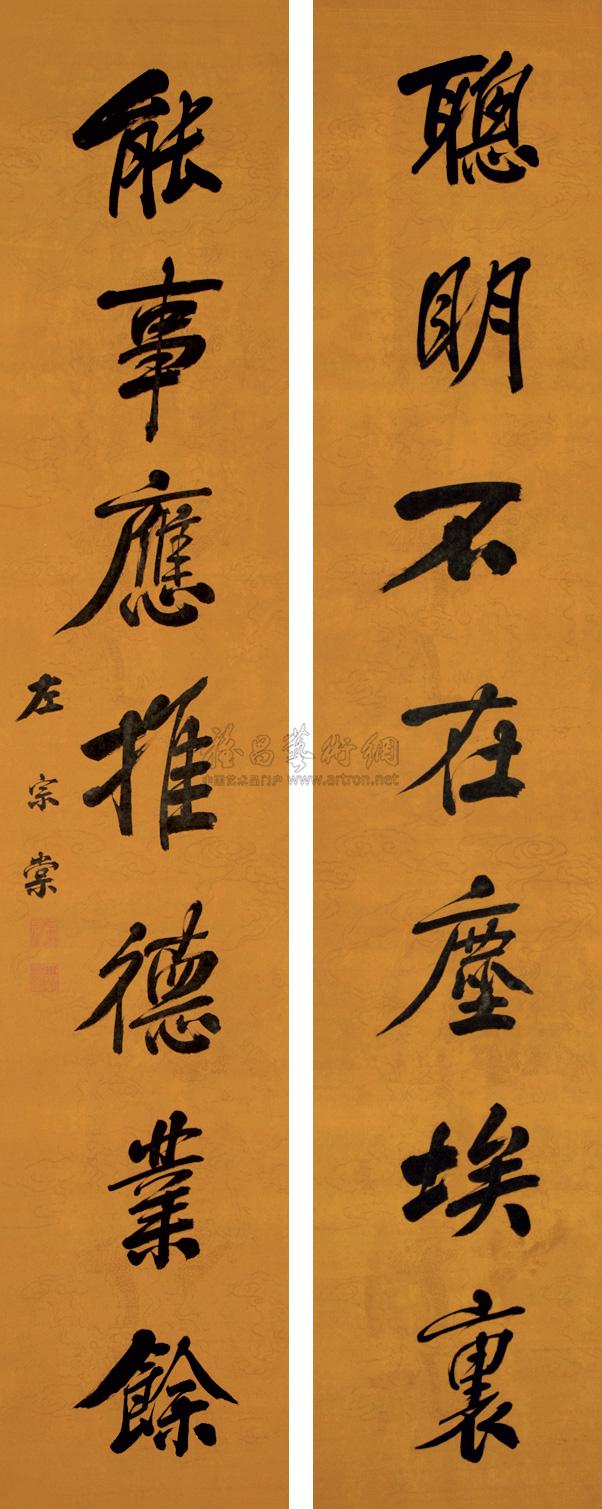 聰明不在塵埃裏
能事應推德業餘
左宗棠
雅昌藝術網
中国艺术品门户 www.artron.net